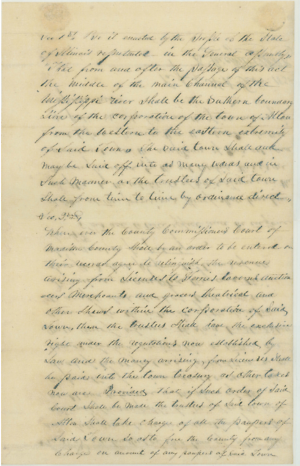 Sec 1st Be it enacted by the People of the State
of Illinois represented in the General Assembly
That from and after the passage of this act
the middle of the main Channel of the
Mississippi River shall be the Southern boundary
line of the corporation of the town of Alton
from the western to the eastern extremity
of said town. The said town shall and
may be laid off into as many wards and in
such manner as the trustees of said town
shall from time to time by ordinance direct
Sec. 2d
Whenever the County Commissioners Court of
Madison County shall by an order to be entered on
their record agree to relinquish the revenue
arising from Licenses to
Merchants and grocers theatrical and
other shows within the corporation of said
Town, then the trustees shall have the exclusive
right under the regulations now established by
Law and the money arising from licenses shall
be paid into the town treasury as other taxes
now are Provided that if such order of said
Court shall be made the trustees of said town of
Alton shall take charge of all the paupers of
said town so as to free the County from any
charge on account of any paupers of said Town